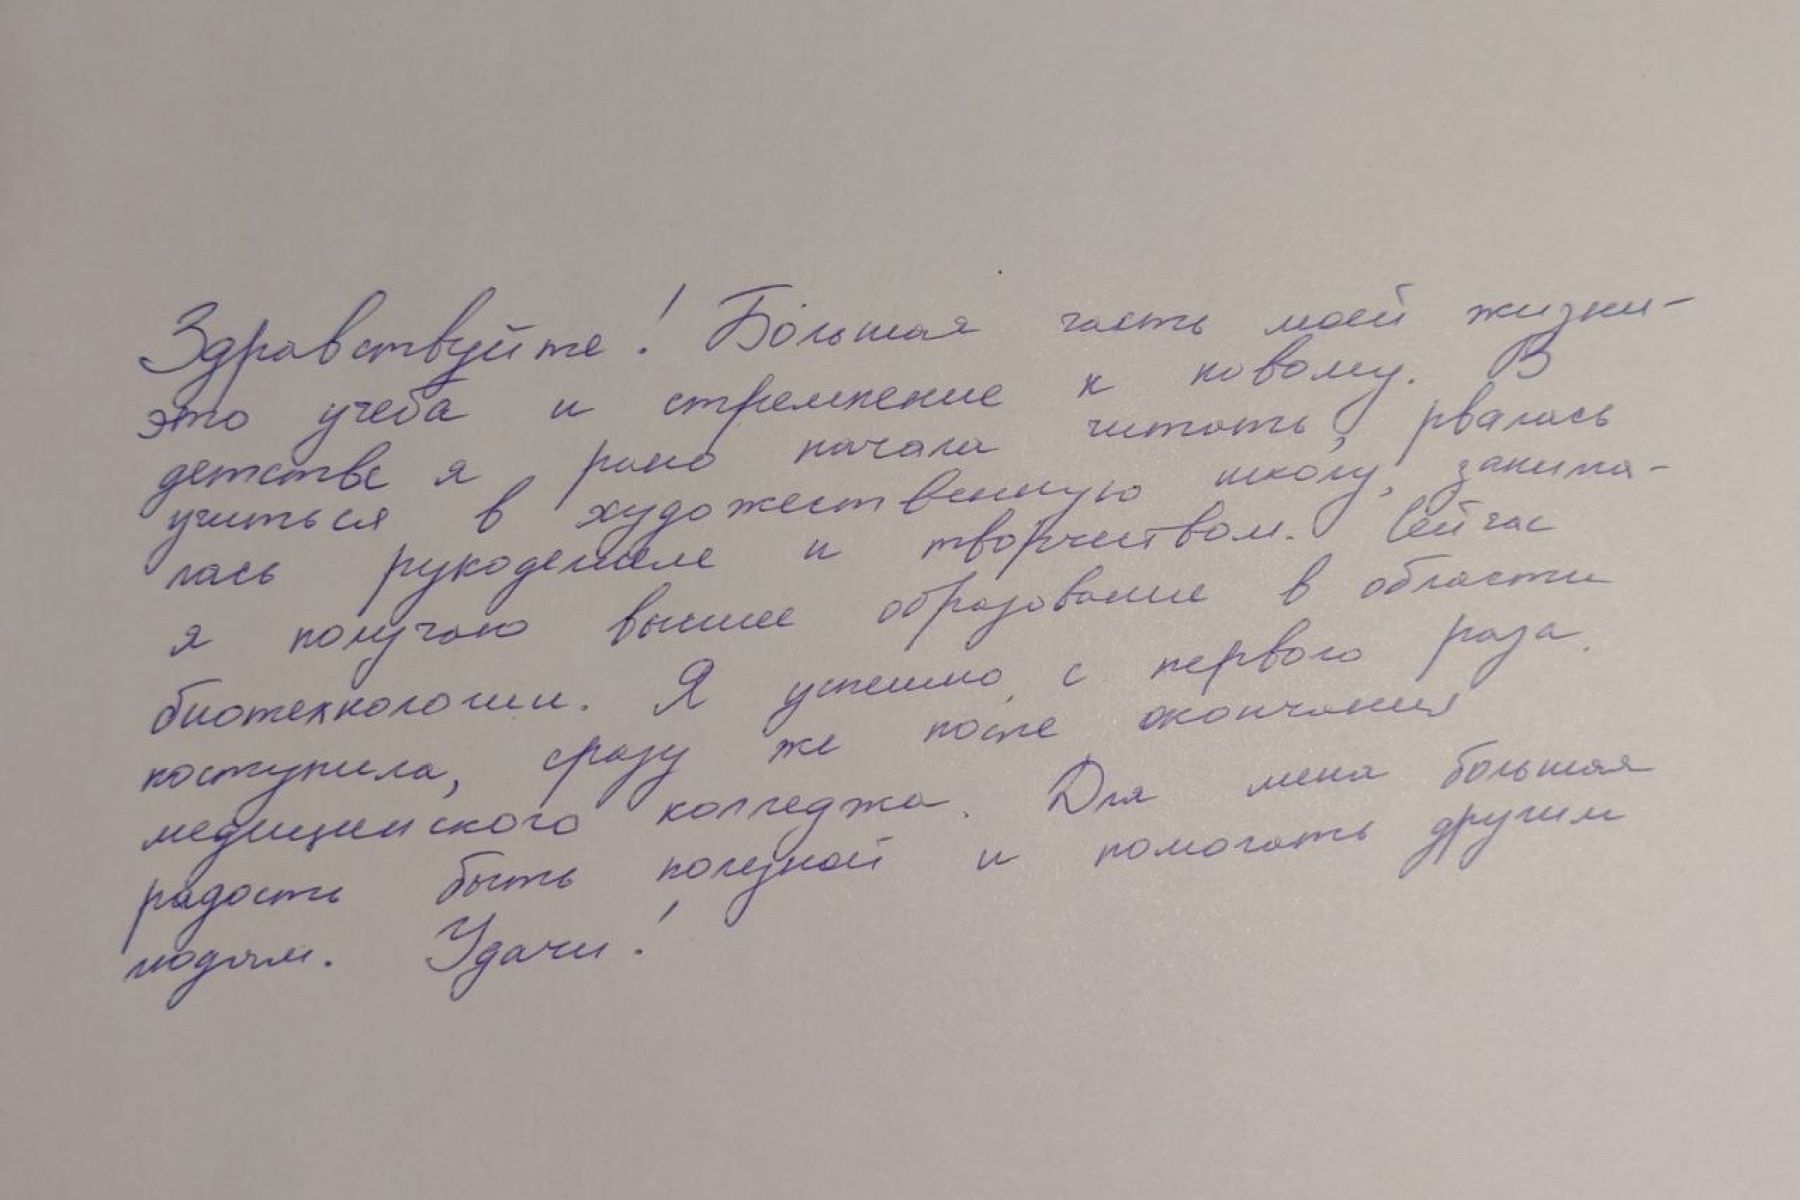 Здравствуйте! Бо́льшая часть моей жизни -
это учеба и стремление к новому. В
детстве я рано начала читать, рвалась
учиться в художественную школу, занима-
лась рукоделием и творчеством. Сейчас
я получаю высшее образование в области
биотехнологии. Я успешно, с первого раза
поступила, сразу же после окончания
медицинского колледжа. Для меня большая
радость быть полезной и помогать другим
людям. Удачи!